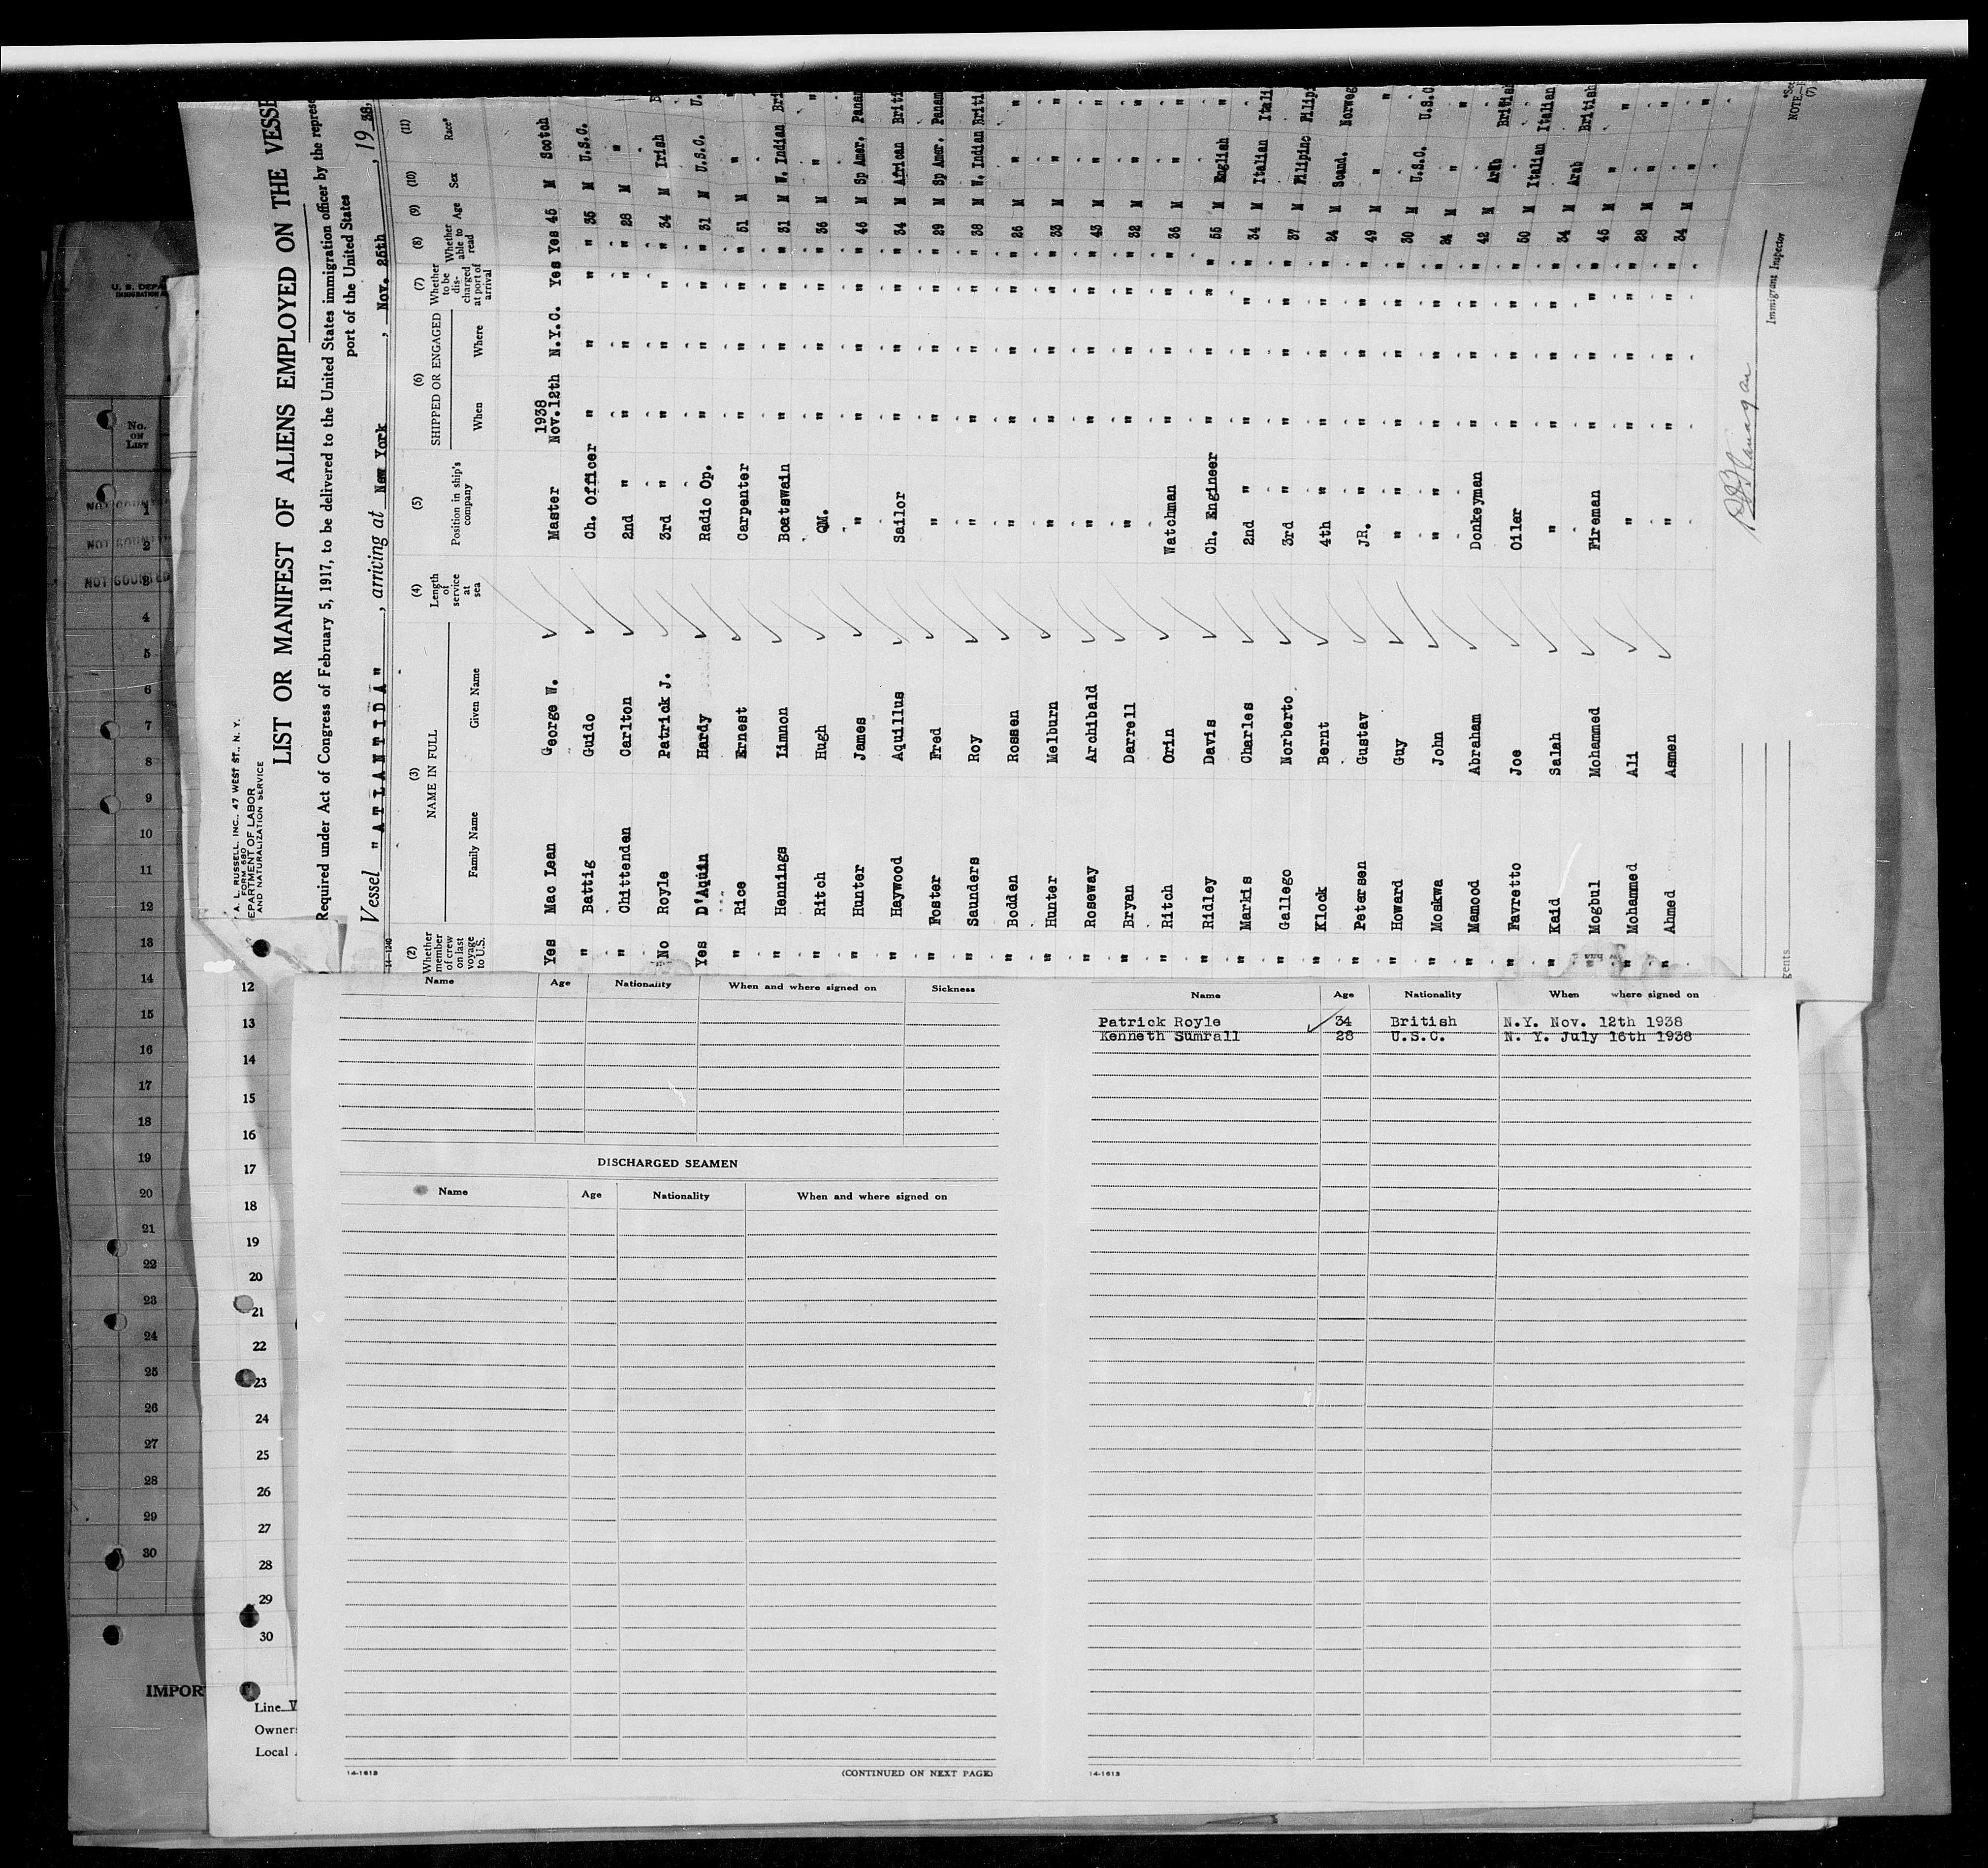 A. L. RUSSELL, INC., 47 WEST ST., N. Y.
FORM 680
DEPARTMENT OF LABOR
AND NATURALIZATION SERVICE
LIST OR MANIFEST OF ALIENS EMPLOYED ON THE VESSE
Required under Act of Congress of February 5, 1917, to be delivered to the United States immigration officer by the represe
port of the United States
Vessel "ATLANTIDA", arriving at New York, Nov. 25th, 19 38,
14-1240
(2) Whether member of crew on last voyage to U.S. (3) NAME IN FULL Family Name Given Name (4) Length of service at sea (5) Position in ship's company (6) SHIPPED OR ENGAGED When Where (7) Whether to be discharged at port of arrival (8) Whether able to read (9) Age (10) Sex (11) Race*
1938
Yes Mac Lean George W. Master Nov.12th N.Y.C. Yes Yes 45 M Scotch
" Battig Guido Ch. Officer " " " " 35 M U.S.C.
" Chittenden Carlton 2nd " " " " " 28 M "
No Royle Patrick J. 3rd " " " " " 34 M Irish B
Yes D'Aquin Hardy Radio Op. " " " " 31 M U.S.C. U.
" Rice Ernest Carpenter " " " " 51 M " "
" Hennings Limnon Boatswain " " " " 31 M W. Indian Bri
" Ritch Hugh QM. " " " " 36 M " "
" Hunter James " " " " " 46 M Sp Amer. Panam
" Haywood Aquillus Sailor " " " " 34 M African Briti
" Foster Fred " " " " " 29 M Sp Amer. Panam
" Saunders Roy " " " " " 38 M W. Indian Briti
" Bodden Rossen " " " " " 26 M " "
" Hunter Melburn " " " " " 33 M " "
" Roseway Archibald " " " " " 43 M " "
" Bryan Darrell " " " " " 32 M " "
" Ritch Orin Watchman " " " " 36 M " "
" Ridley Davis Ch. Engineer " " " " 55 M English "
" Markis Charles 2nd " " " " " 34 M Italian Itali
" Gallego Norberto 3rd " " " " " 37 M Filipino Filipi
" Klock Bernt 4th " " " " " 24 M Scand. Norweg
" Petersen Gustav JR. " " " " " 49 M " "
" Howard Guy " " " " " 30 M U.S.C. U.S.C
" Moskwa John " " " " " 24 M " "
" Mamood Abraham Donkeyman " " " " 42 M Arab British
" Favretto Joe Oiler " " " " 50 M Italian Italian
" Kaid Salah " " " " " 34 M Arab British
" Mogbul Mohammed Fireman " " " " 45 M " "
" Mohammed Ali " " " " " 28 M " "
" Ahmed Asmen " " " " " 34 M " "
Immigrant Inspector
*See
NOTE.—
(7)
gents
U. S. DEPA
IMMIGRATION A
No. ON LIST
NOT COUNTED
1
NOT COUNTED
2
NOT COUNTED
3
4
5
6
7
8
9
10
11
12
13
14
15
16
17
18
19
20
21
22
23
24
25
26
27
28
29
30
IMPOR
12
13
14
15
16
17
18
19
20
21
22
23
24
25
26
27
28
29
30
Line V
Owners
Local
Name Age Nationality When and where signed on Sickness
DISCHARGED SEAMEN
Name Age Nationality When and where signed on
14-1613 (CONTINUED ON NEXT PAGE)
Name Age Nationality When where signed on
Patrick Royle 34 British N.Y. Nov. 12th 1938
Kenneth Sumrall 28 U.S.C. N. Y. July 16th 1938
14-1613